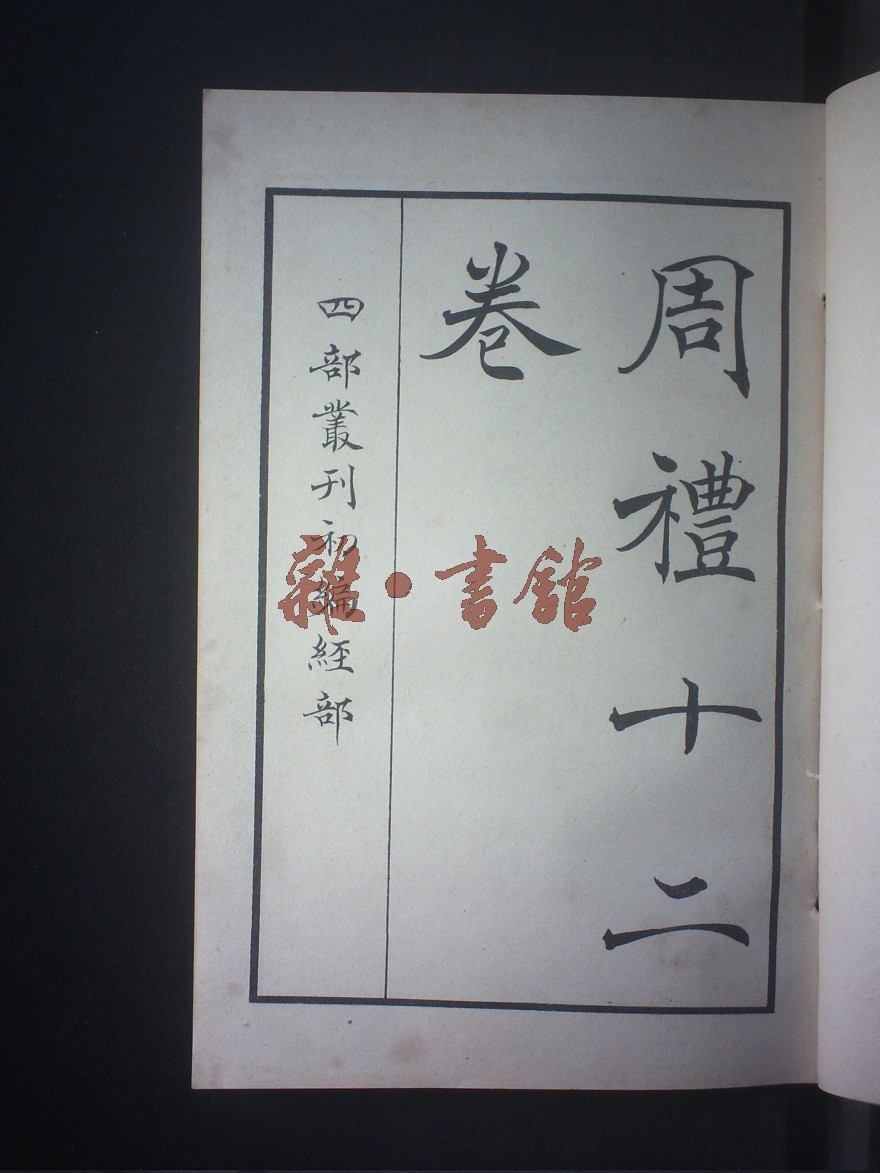 周禮十二
卷
四部叢刊初編經部
雜·書館